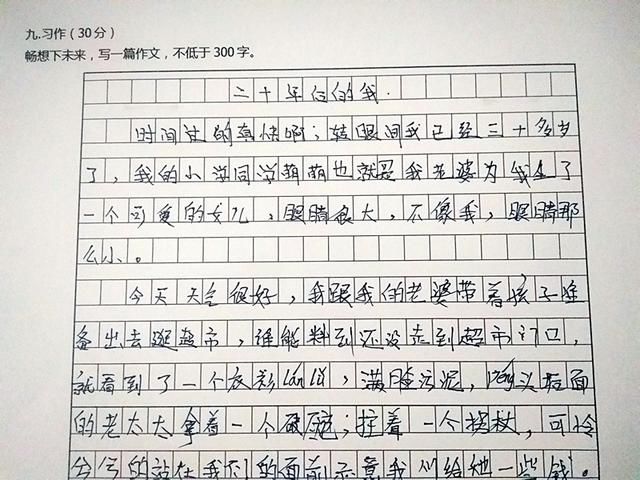 九.习作（30分）
畅想下未来，写一篇作文，不低于300字。
二十年后的我.
时间过的真快啊；转眼间我已经三十多岁
了，我的小学同学萌萌也就是我老婆为我生了
一个可爱的女儿，眼睛很大，不像我，眼睛那
么小。
今天天气很好，我跟我的老婆带着孩子准
备出去逛超市，谁能料到还没走到超市门口，
就看到了一个衣衫lán lǚ，满脸污泥，péng头垢面
的老太太拿着一个破碗；拄着一个拐杖，可怜
兮兮的站在我们的面前示意我们给她一些钱。